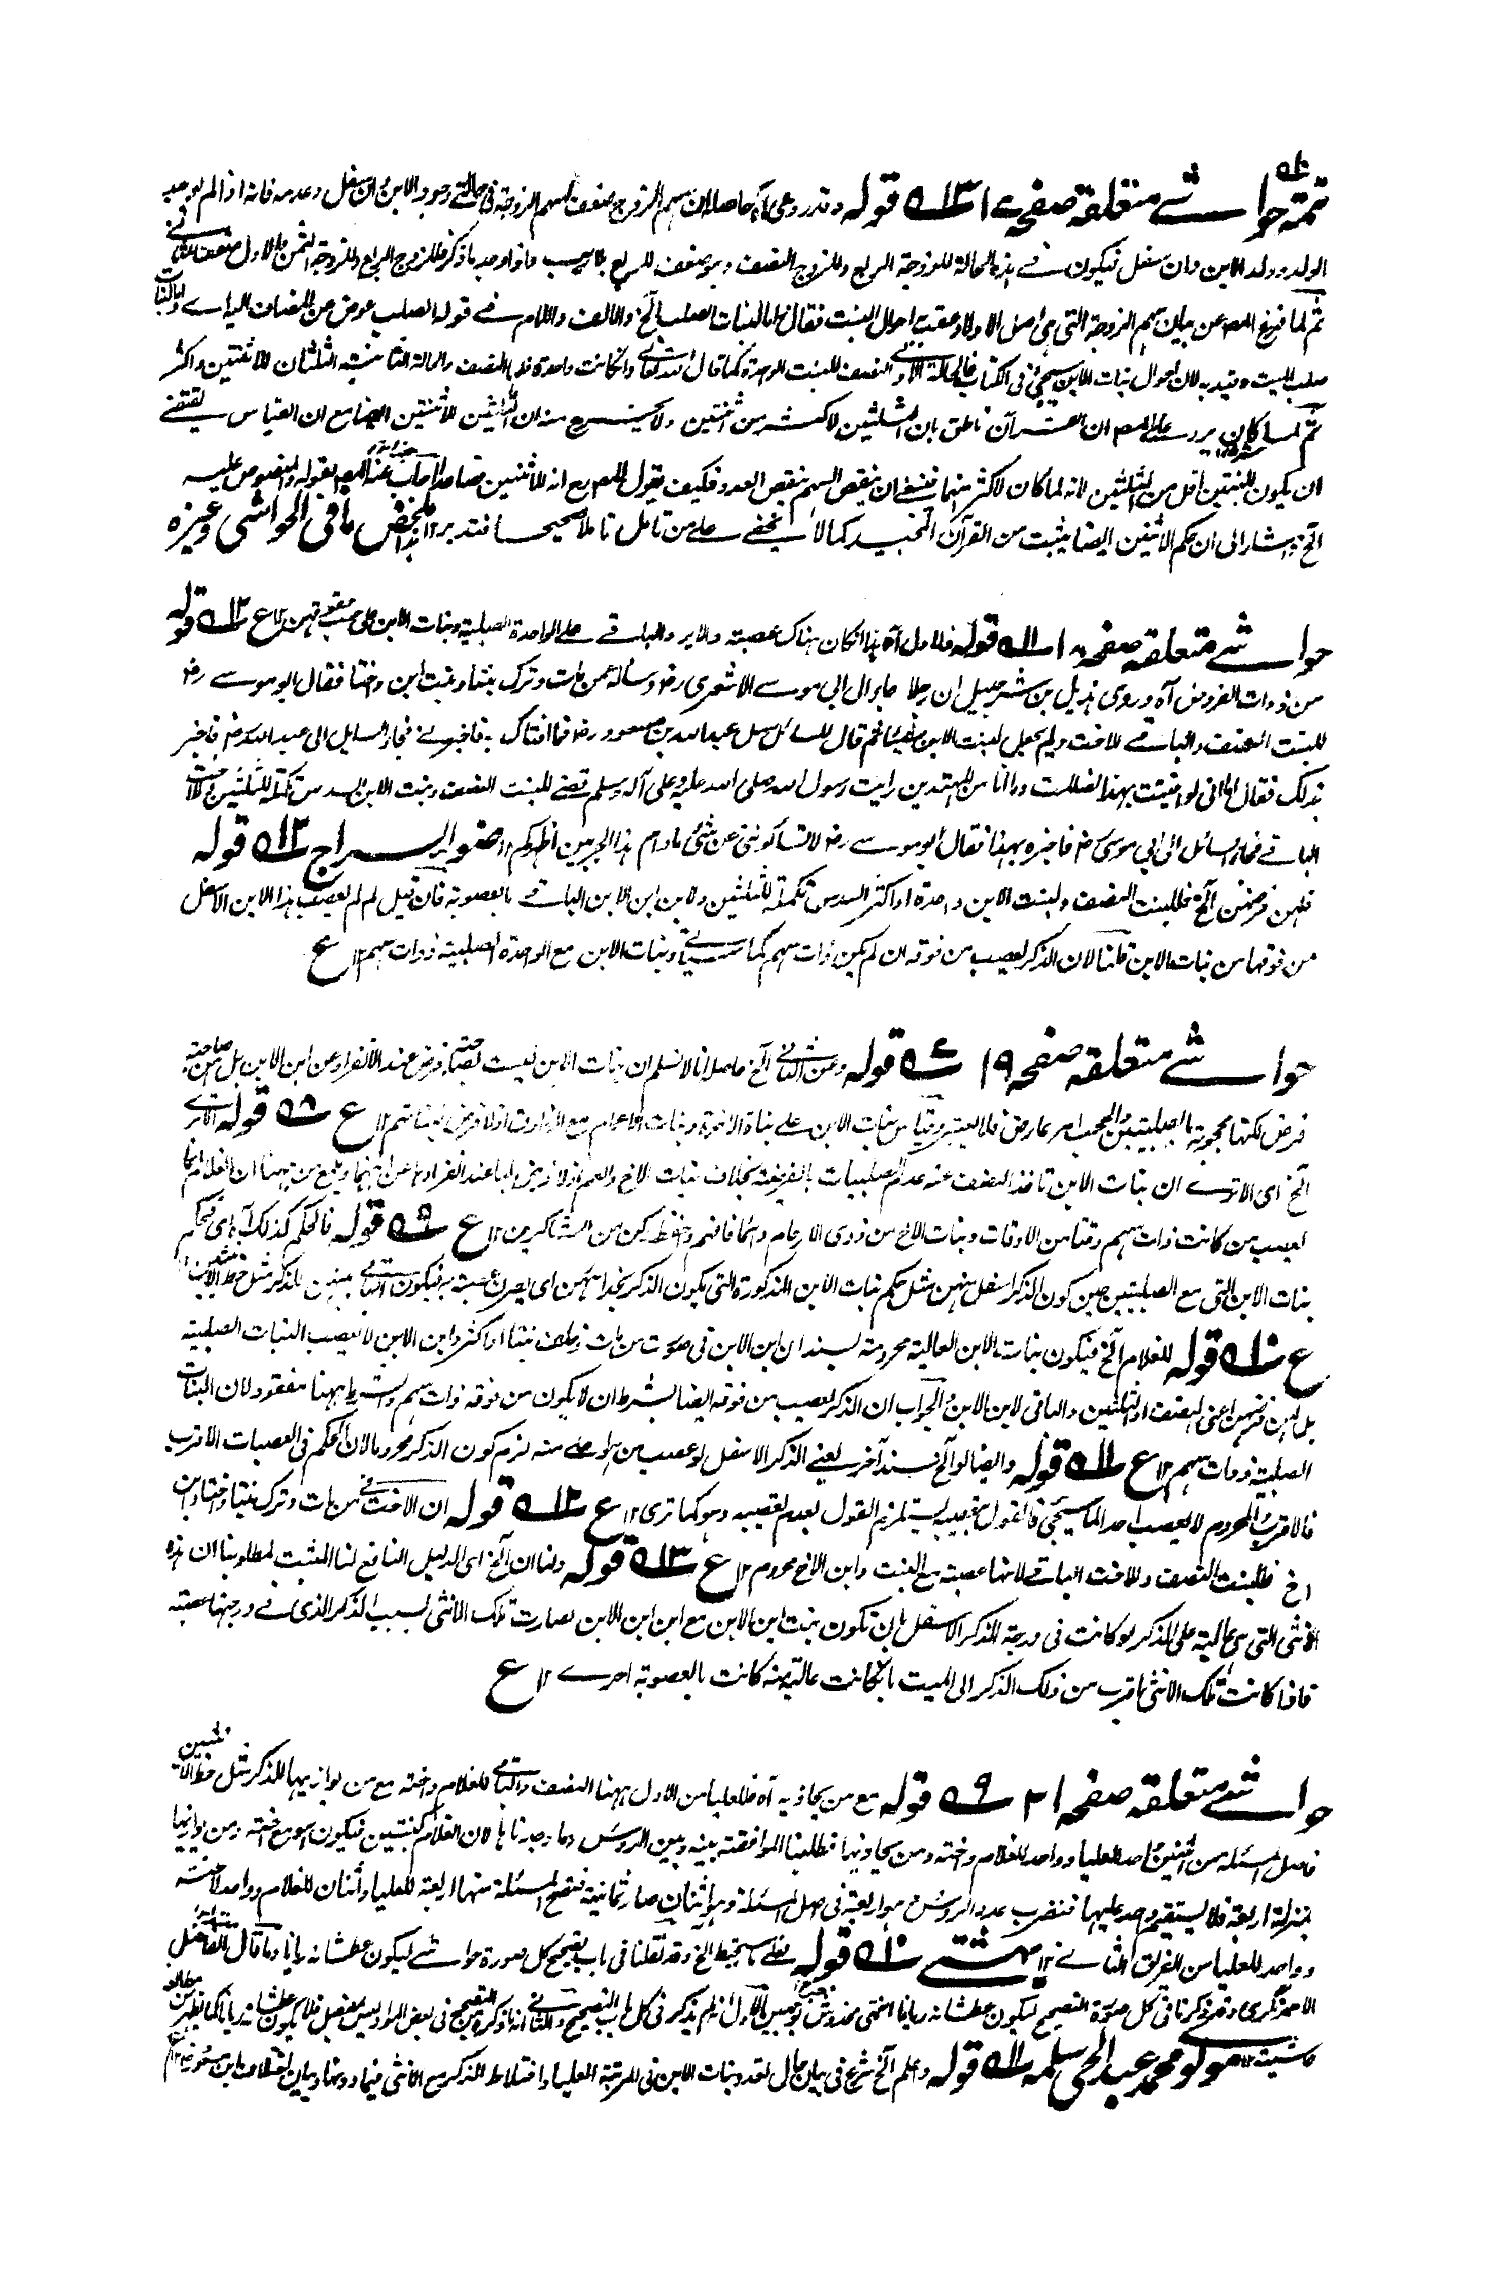 تتمة حواشے متعلقة صفحہ ١٧ ٥١٣ قوله وقد روعی آه حاصله ان سهم الزوج ضعف لسهم الزوجة فی حالتے وجود الابن وان سفل وعدمه فانه اذا لم يوجد
الولد وولد الابن وان سفل فيكون فے هذه الحالة للزوجة الربع وللزوج النصف وهو ضعف للربع واذا وجد ما ذكر فللزوج الربع وللزوجة الثمن والاول ضعف الثانے
ثم لما فرغ المص عن بيان سهم الزوجة التی هی اصل الاولاد عقبه احوال البنت فقال واما لبنات الصلب الخ والالف واللام فے قوله الصلب عوض عن المضاف اليه اے
صلب الميت وقيد به لان احوال بنات الابن سيجئ فی الكتاب فالحالة الاولے النصف للبنت الواحدة كما قال الله تعالے وان كانت واحدة فلها النصف والحالة الثانية الثلثان للاثنتين واكثر
ثم لما كان يرد علے المص ان القرآن ناطق بان الثلثين لاكثر من اثنتين ولا يخرج منه ان الثلثين للاثنتين ايضا مع ان القياس يقتضے
ان يكون للبنتين اقل من الثلثين لانه لما كان لاكثر منهما فينبغے ان ينقص السهم بنقص العدد فكيف يقول المص رح انه للاثنتين فصاعدا اجاب عنه المص بقوله والمنصوص عليه
الخ واشار الی ان حكم الاثنتين ايضا يثبت من القرآن المجيد كما لا يخفے علے من تامل تاملا صحيحا فتدبر ١٢ هذا ملخص ما فی الحواشی وغيره
حواشے متعلقه صفحه ١٨ ٥١١ قوله فلاول آه هذا ان كان هناك عصبة والا يرد الباقے علے الواحدة الصلبية وبنات الابن علی حسب حقوقهن ١٢ ع ٥١٢ قوله
من ذوات الفروض آه وروی هذيل بن شرحبيل ان رجلا جاء الی ابی موسے الاشعری رض وساله عمن مات وترك بنتا وبنت ابن واختا فقال ابو موسے رض
للبنت النصف والباقے للاخت ولم يجعل لبنت الابن شيئا ثم قال للسائل سل عبد الله بن مسعود رض فما افتاك به فاخبرنے فجاء السايل الی عبد الله رض فاخبر
بذلك فقال انی لو افتيت بهذا لضللت وما انا من المهتدين رايت رسول الله صلی الله عليه وعلی آله وسلم قضے للبنت النصف وبنت الابن السدس تكملة للثلثين وللاخت
الباقے فجاء السائل الی ابی موسی رض فاخبره بهذا فقال ابو موسے رض لا تسألوننی عن شئ ما دام هذا الحبر بين اظهركم ١٢ ضوء السراج ٥١٣ قوله
فلهن فرضهن الخ فللبنت النصف ولبنت الابن واحدة او اكثر السدس تكملة للثلثين ولابن ابن الابن الباقے بالعصوبة فان قيل لم لم يعصب هذا الابن الاسفل
من فوقها من بنات الابن قلنا لان الذكر يعصب من فوقه ان لم يكن ذات سهم كما سياتے وبنات الابن مع الواحدة الصلبية ذوات سهم ١٢ ع
حواشے متعلقه صفحه ١٩ ٥٧ قوله وعن الثانے الخ حاصله انا لا نسلم ان بنات الابن ليست بصاحبة فرض عند الانفراد عن ابن الابن بل هن صاحبة
فرض لكنها محجوبة بالصلبيتين والحجب امر عارض فلا يعتبر وقياس بنات الابن علے بناة الاخوة وبنات الاعمام مع الفارق اذ لا فرض لبناتهم ١٢ ع ٥٨ قوله الا ترے
الخ ای الا ترے ان بنات الابن تاخذ النصف عند عدم الصلبيات بالفريضة بخلاف بنات الاخ والعم اذ لا فرض لهما عند انفرادهما عن ابنهما وبلغ من ههنا ان الغلام انما
يعصب من كانت ذات سهم وقتا من الاوقات وبنات الاخ من ذوی الارحام دائما فافهم واحفظ وكن من الشاكرين ١٢ ع ٥٩ قوله فالحكم كذلك آه ای حكم
بنات الابن التی مع الصلبيتين حين كون الذكر اسفل منهن مثل حكم بنات الابن المذكورة التی يكون الذكر بحذائهن ای يصرن عصبة به فيكون الباقے بينهن للذكر مثل حظ الانثيين
ع ٥١٠ قوله للغلام الخ فيكون بنات الابن العالية محرومة لسند ان ابن الابن فی صورت من مات وخلف بنتا او اكثر وابن الابن لا يعصب البنات الصلبية
بل لهن فرضهن اعنی النصف او الثلثين والباقی لابن الابن والجواب ان الذكر يعصب من فوقه ايضا بشرط ان لا يكون من فوقه ذات سهم والشرط ههنا مفقود لان البنات
الصلبية ذوات سهم ١٢ ع ٥١١ قوله وايضا لو الخ سند آخر يعنے الذكر الاسفل لو عصب من هو اعلے منه لزم كون الذكر محروما لان الحكم فی العصبات الاقرب
فالاقرب والمحروم لا يعصب احدا لما سيجئ فالقول بتعصيبه يستلزم القول بعدم تعصيبه وهو كما تری ١٢ ع ٥١٢ قوله ان الاخت فے من مات وترك بنتا واختا وابن
اخ فللبنت النصف وللاخت الباقے لانها عصبة مع البنت وابن الاخ محروم ١٢ ع ٥١٣ قوله ولنا ان الخ ای الدليل النافع لنا المثبت لمطلوبنا ان هذه
الانثی التی هی عالية علی الذكر لو كانت فی درجة الذكر الاسفل بان تكون بنت ابن الابن مع ابن ابن الابن لصارت تلك الانثی بسبب الذكر الذی فے درجتها عصبة
فاذا كانت تلك الانثی اقرب من ذلك الذكر الی الميت بان كانت عالية منه كانت بالعصوبة احرے ١٢ ع
حواشے متعلقه صفحه ٢١ ٥٩ قوله مع من يحاذيه آه فللعليا من الاول ههنا النصف والباقے للغلام واخته مع من يوازيها للذكر مثل حظ الانثيين
فاصل المسئلة من اثنين واحد للعليا وواحد للغلام واخته ومن يحاذيها فطلبنا الموافقة بينه وبين الرؤس وما وجدناها لان الغلام كبنتين فيكون هو مع اخته ومن يوازيها
بمنزلة اربعة فلا يستقيم واحد عليها فنضرب عدد الرؤس وهو اربعة فی اصل المسئلة وهو اثنان صار ثمانية فتصح المسئلة منها اربعة للعليا واثنان للغلام وواحد لاخته
وواحد للعليا من الفريق الثانے ١٢ بهشتے ٥١٠ قوله الخ وقد نقلنا فی باب تصحيح كل صورة حواشے ليكون عطشانه ريانا وما قال الفاضل
الاحمد نگری وقد ذكرنا فی كل صورة التصحيح ليكون عطشانه ريانا انتهی مخدوش بوجهين الاول انه لم يذكر فی كل باب التصحيح والثانے انه ما ذكره من التصحيح فی بعض
حاشيته ١٢ مولو محمد عبد الحی سلمه ٥١١ قوله واعلم الخ شرع فی بيان حال تعدد بنات الابن فی المرتبة العليا واختلاط الذكر مع الانثی فيها